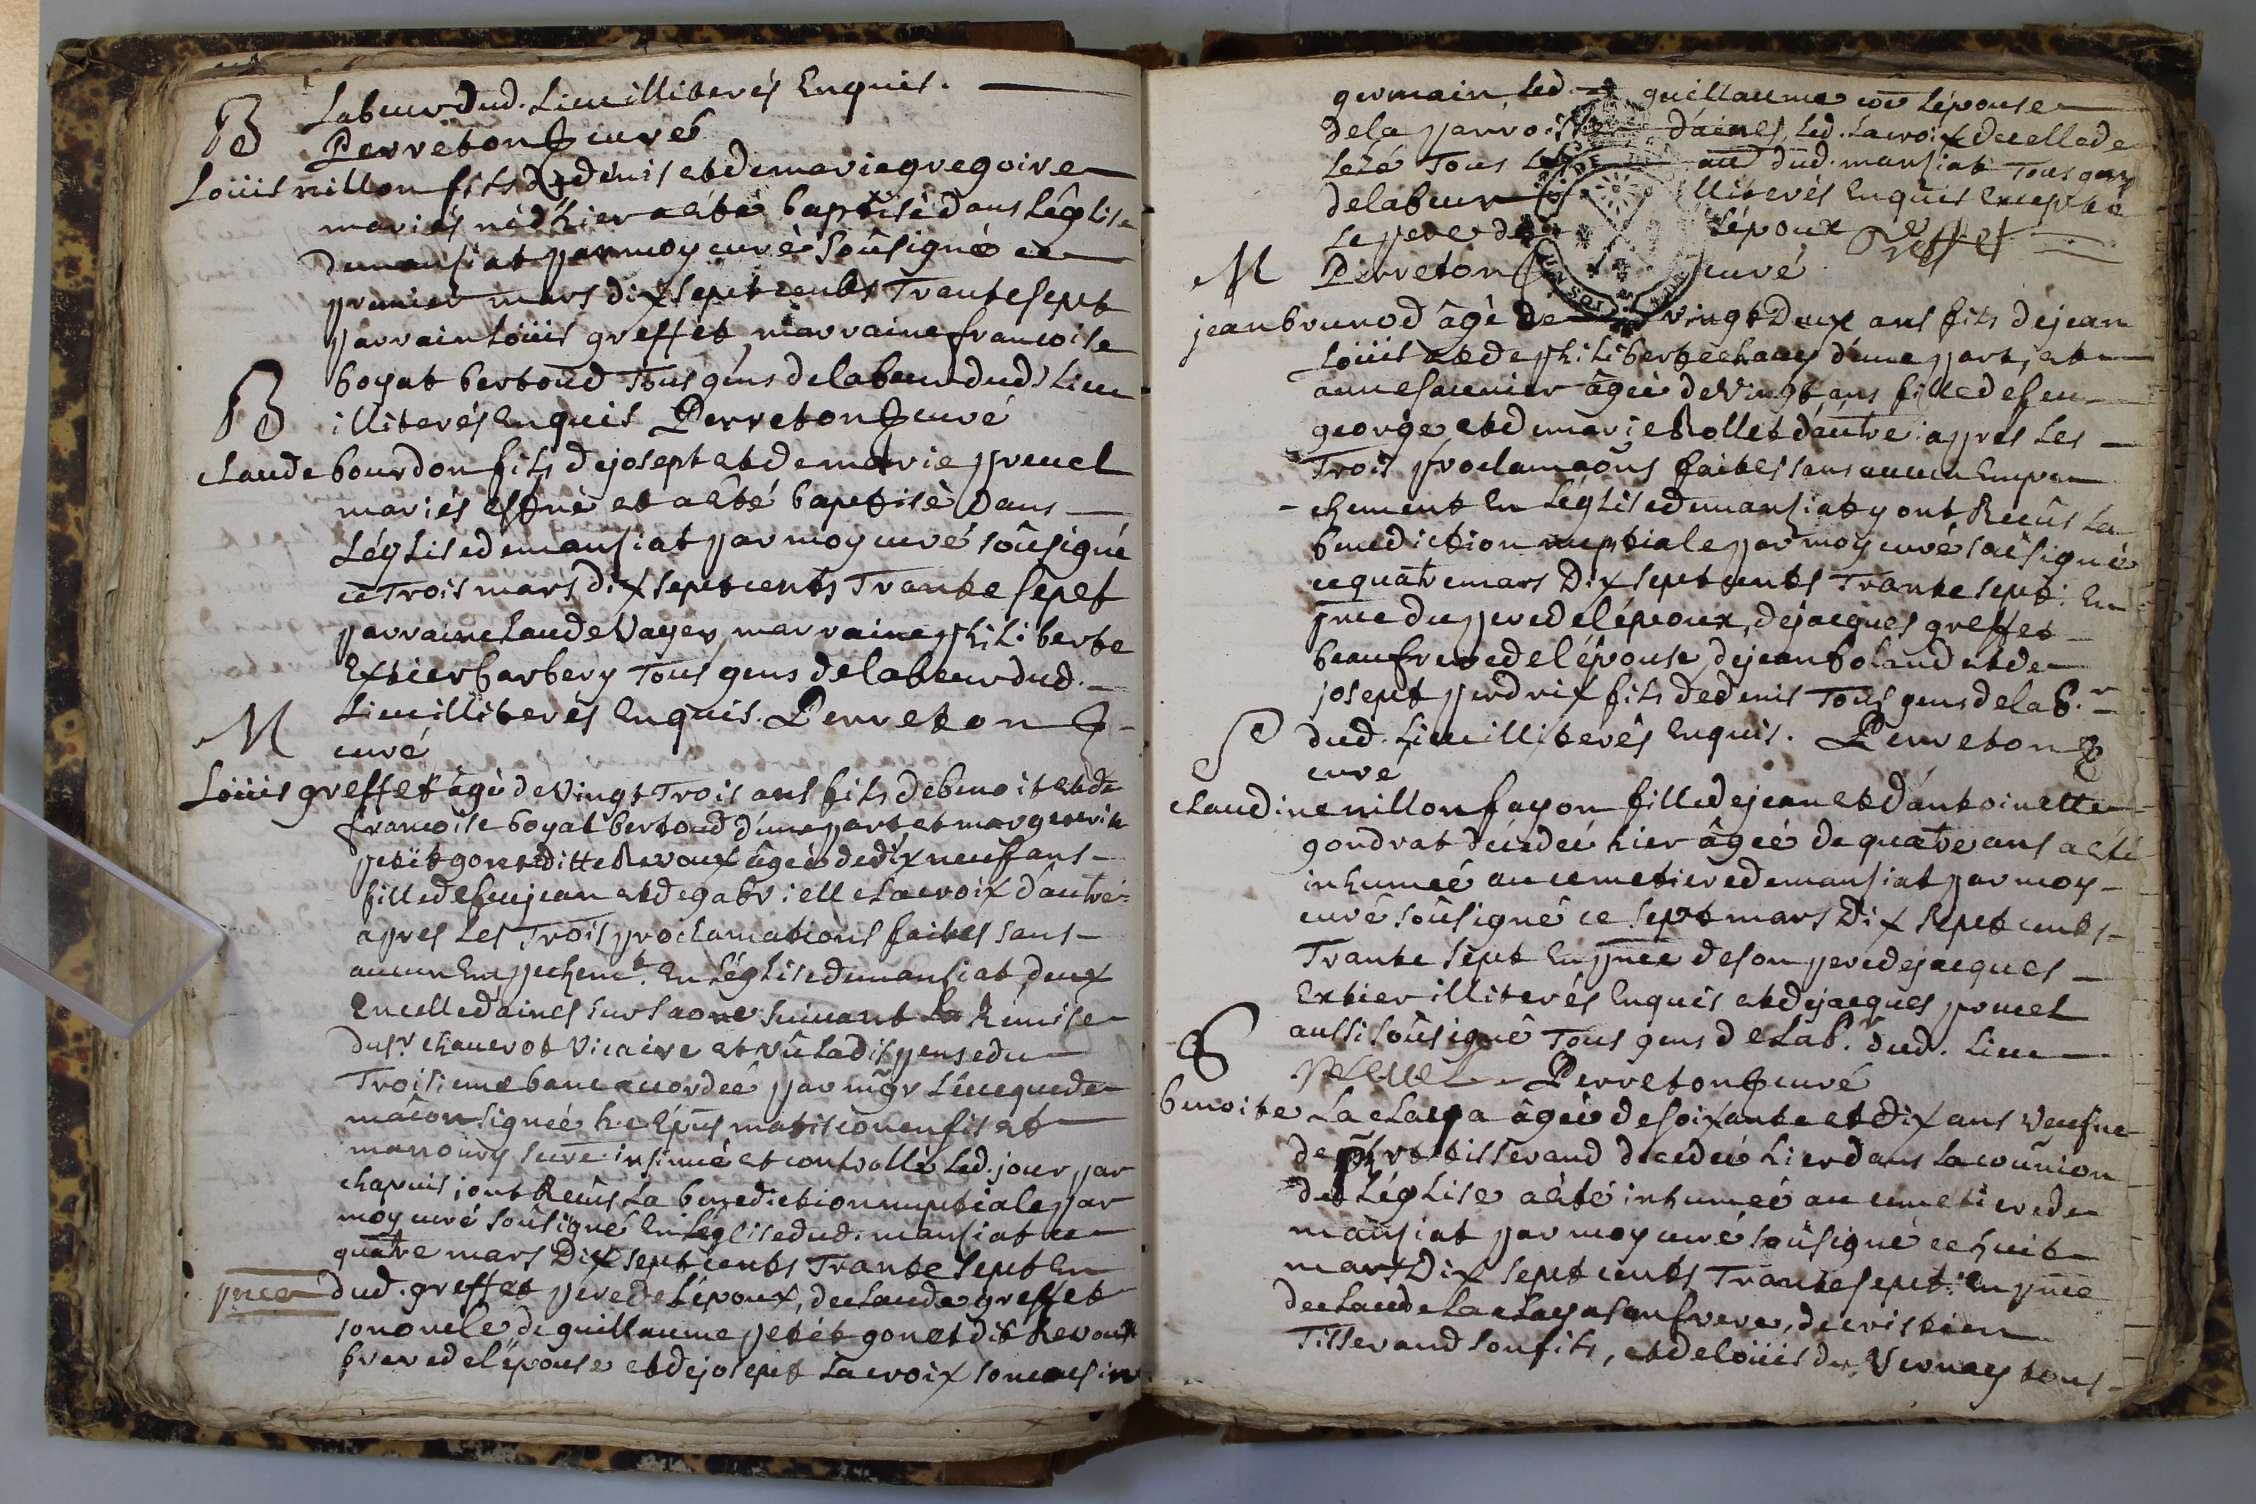 Labeur dud. Lieu illiterés Enquis.
B
Perreton curé
Loüis nillon fils de dénis et de marie gregoire
mariés né d'hier a été baptisé dans Léglise
de mansiat par moy curé soûsigné ce
premier mars dix sept cents Trante sept
parrain Loüis greffet, marraine francoise
boyat bertoud Tous gens de labeur dud. Lieu
B
illiterés Enquis Perreton curé
claude bourdon fils de josept et de marie pruel
mariés est né et a été baptisé Dans
Léglise de mansiat par moy curé soûsigné
ce Trois mars dix sept cents Trante sept
parrain claude Vayer, marraine philiberte
Extier barbery Tous gens de labeur dud.
M
Lieu illiterés Enquis. Perreton
curé
Loüis greffet âgé de vingt Trois ans fils de benoit et de
francoise boyat bertoud d'une part, et marguerite
petit gonet ditte Revoux âgée de dix neuf ans
fille de feu jean et de gabrielle Lacroix d'autre
apres Les Trois proclamations faites sans
aucun Empechemt. En Léglise de mansiat, deux
En celle d'aines sur saone suivant La Remise
du sr. chauerot vicaire et vû La dispense du
Troisieme banc accordée par mgr Léveque de
mâcon signée h. c. Epus matisconensis et
manoury secre. insinué et controllé led. jour par
chapuis, ont Recûs La benediction nuptiale par
moy curé soûsigné En Léglise dud. mansiat ce
quatre mars Dix sept cents Trante sept En
pnce dud. greffet pere de L'époux, de claude greffet
son oncle, de guillaume petit gonet dit Revoux
frere de l'épouse et de josept Lacroix son cousin
germain, Led. guillaume et L'épouse
de la parroisse d'aines, Led. Lacroix de celle de
Lezé Tous Les au dud. mansiat Tous gens
de labeur illiterés Enquis Excepté
Le pere de L'époux Greffet
M
Perreton curé
jean brunod âgé de vingt Deux ans fils de jean
Loüis et de philiberte chany d'une part, et
anne saunier âgée de Vingt ans fille de feu
george et de marie Rollet d'autre apres Les
Trois proclamaons faites sans aucun Empe
chement En Léglise de mansiat, y ont Recûs La
benediction nuptiale par moy curé soûsigné
ce quatre mars Dix sept cents Trante sept. En
pnce du pere de l'époux, de jacques greffet
beaufrere de l'épouse, de jean boland et de
josept perdrix fils de denis Tous gens de lab.r
S
dud. Lieu illiterés Enquis. Perreton
curé
claudine nillon fayon fille de jean et d'antoinette
gondrat décedée hier âgée de quatre ans a été
inhumée au cemetiere de mansiat par moy
curé soûsigné ce sept mars Dix sept cents
Trante sept En pnce de son pere de jacques
Extier illiterés Enquis et de jacques pruel
aussi soûsigné Tous gens de Lab.r dud. Lieu
S
Pruel Perreton curé
benoite La claya âgée de soixante et Dix ans veufue
de phrt tisserand decedée hier dans La coûnion
de Léglise a été inhumée au cemetiere de
mansiat par moy curé soûsigné ce huit
mars Dix sept cents Trante sept. En pnce
de claude La claya son frere, de cristien
Tisserand son fils, et de Loüis du Vernay tous